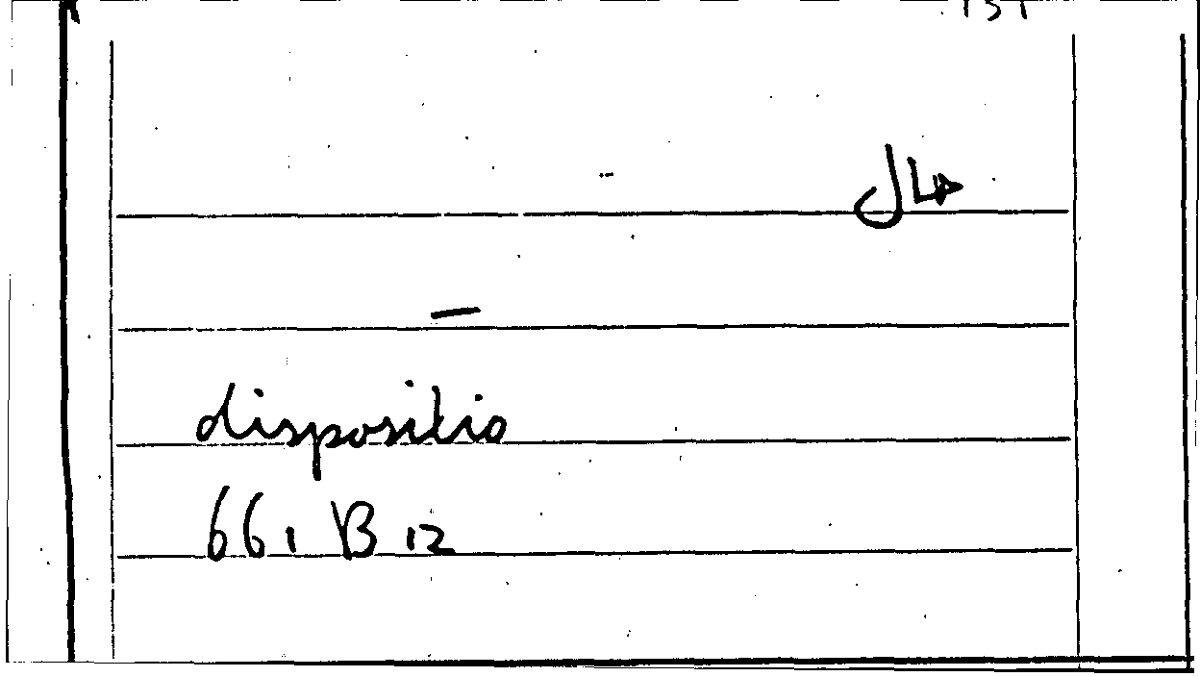 حال
—
dispositio
661 B 12